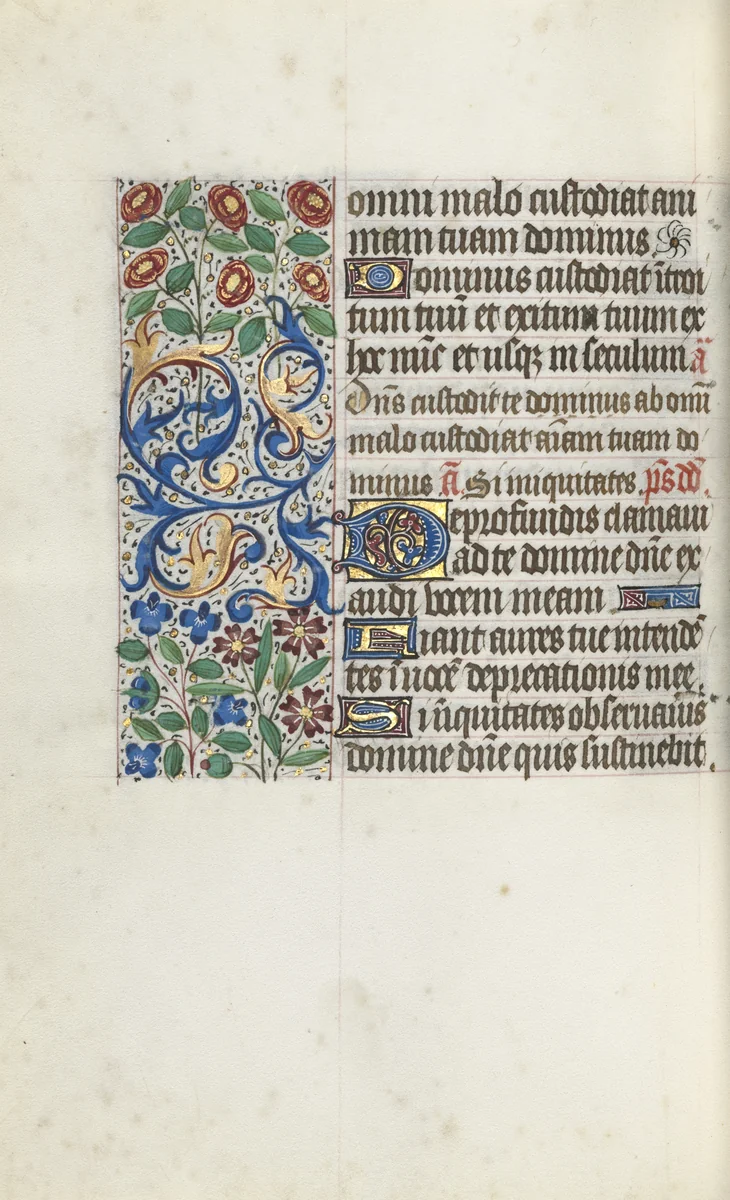 omni malo custodiat ani
mam tuam dominus
Dominus custodiat ītroi
tum tuū et exitum tuum ex
hoc nūc et usqꝫ in seculum ā
Dn̄s custodit te dominus ab omī
malo custodiat aīam tuam do
minus ā Si iniquitates ps̄ dd̄.
De profundis clamaui
ad te domine dn̄e ex
audi vocem meam
Fiant aures tue intendē
tes ī uocē deprecationis mee.
Si īiquitates obseruaūis
domine dn̄e quis sustinebit.